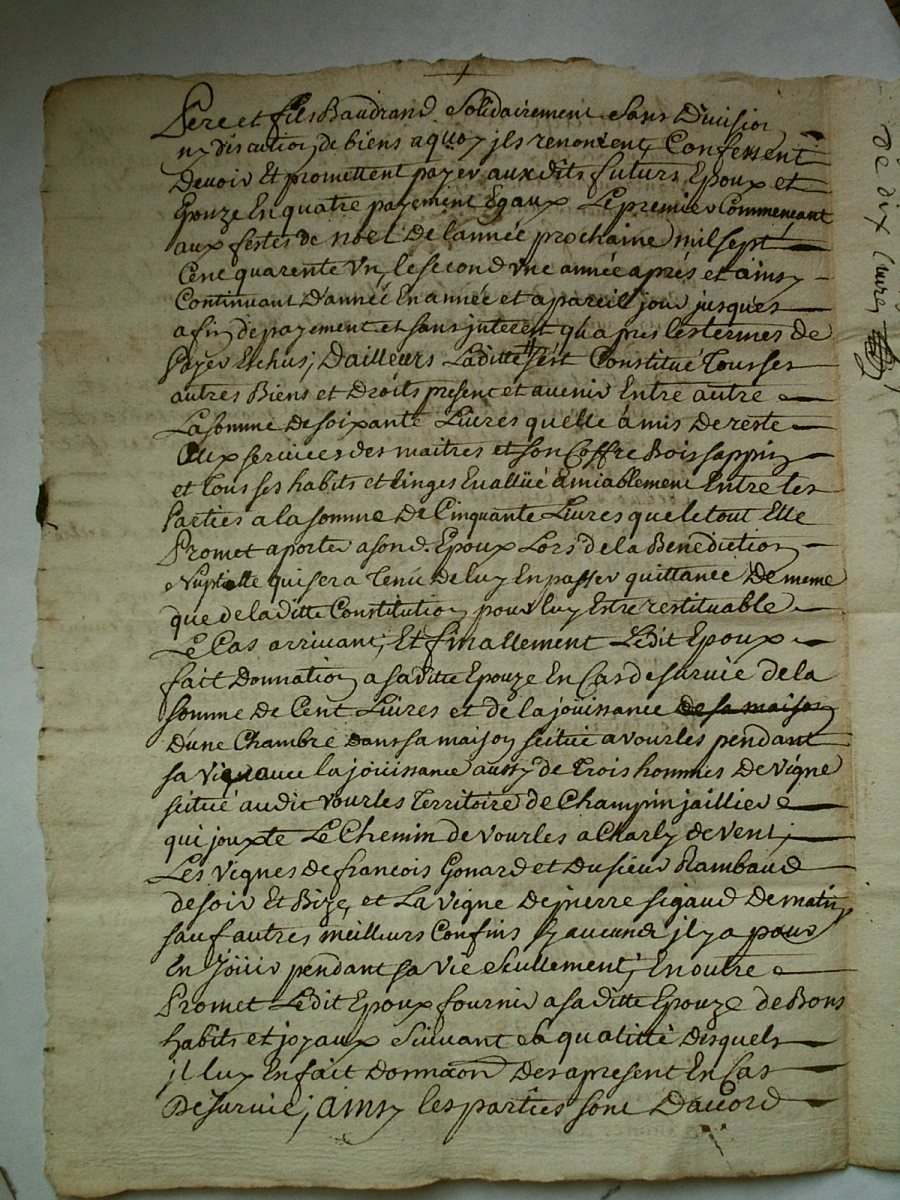 Pere et fils Baudrand Solidairement Sans Division
ny discution de biens a quoy jls renoncent, Confessent
Devoir Et promettent payer aux dits futurs Epoux et
Epouze En quatre payement Egaux Le premier Commencant
aux festes de noel de l'année prochaine mil sept
Cent quarente un, le second une année aprés et ainsy
Continuant D'année En année et a pareil jour jusques
a fin de payement et sans jnterest qu'apres les termes de
payer Eschus; D'ailleurs Laditte s'est Constitué Tous ses
autres Biens et Droits present et avenir Entre autre
La somme De soixante Livres quelle à mis De reste
aux services des maitres et son Coffre Bois sappin
et tous ses habits et Linges Evallüé amiablement Entre les
Parties a la somme De Cinquante Livres que le tout Elle
Promet aporter a son d. Epoux Lors de la Benediction
Nuptialle qui sera Tenu de luy En passer quittance De meme
que de laditte Constitution pour luy Estre restituable
Le Cas arrivant, Et finallement Ledit Epoux
fait Donnation a saditte Epouze En Cas de survie de la
somme De Cent Livres et de la joüissance de sa maison
D'une Chambre dans sa maison scitué a vourles pendant
sa vie avec la joüissance aussy de trois hommes De vigne
scitué audit vourles Territoire de Champinjaillier
qui jouxte Le Chemin de vourles a Charly de vent,
Les Vignes de francois Gonard et Du sieur Rambaud
de soir Et Bize, et La vigne De pierre sigaud De matin
sauf autres meilleurs Confins sy aucuns jl y a pour
En Joüir pendant sa vie seullement; En outre
Promet Ledit Epoux fournir a saditte Epouze de Bons
habits et joyaux Suivant sa qualitté Desquels
jl luy En fait Donnaon Des apresent En Cas
De survie; ainsy les parties sont D'acord
de dix